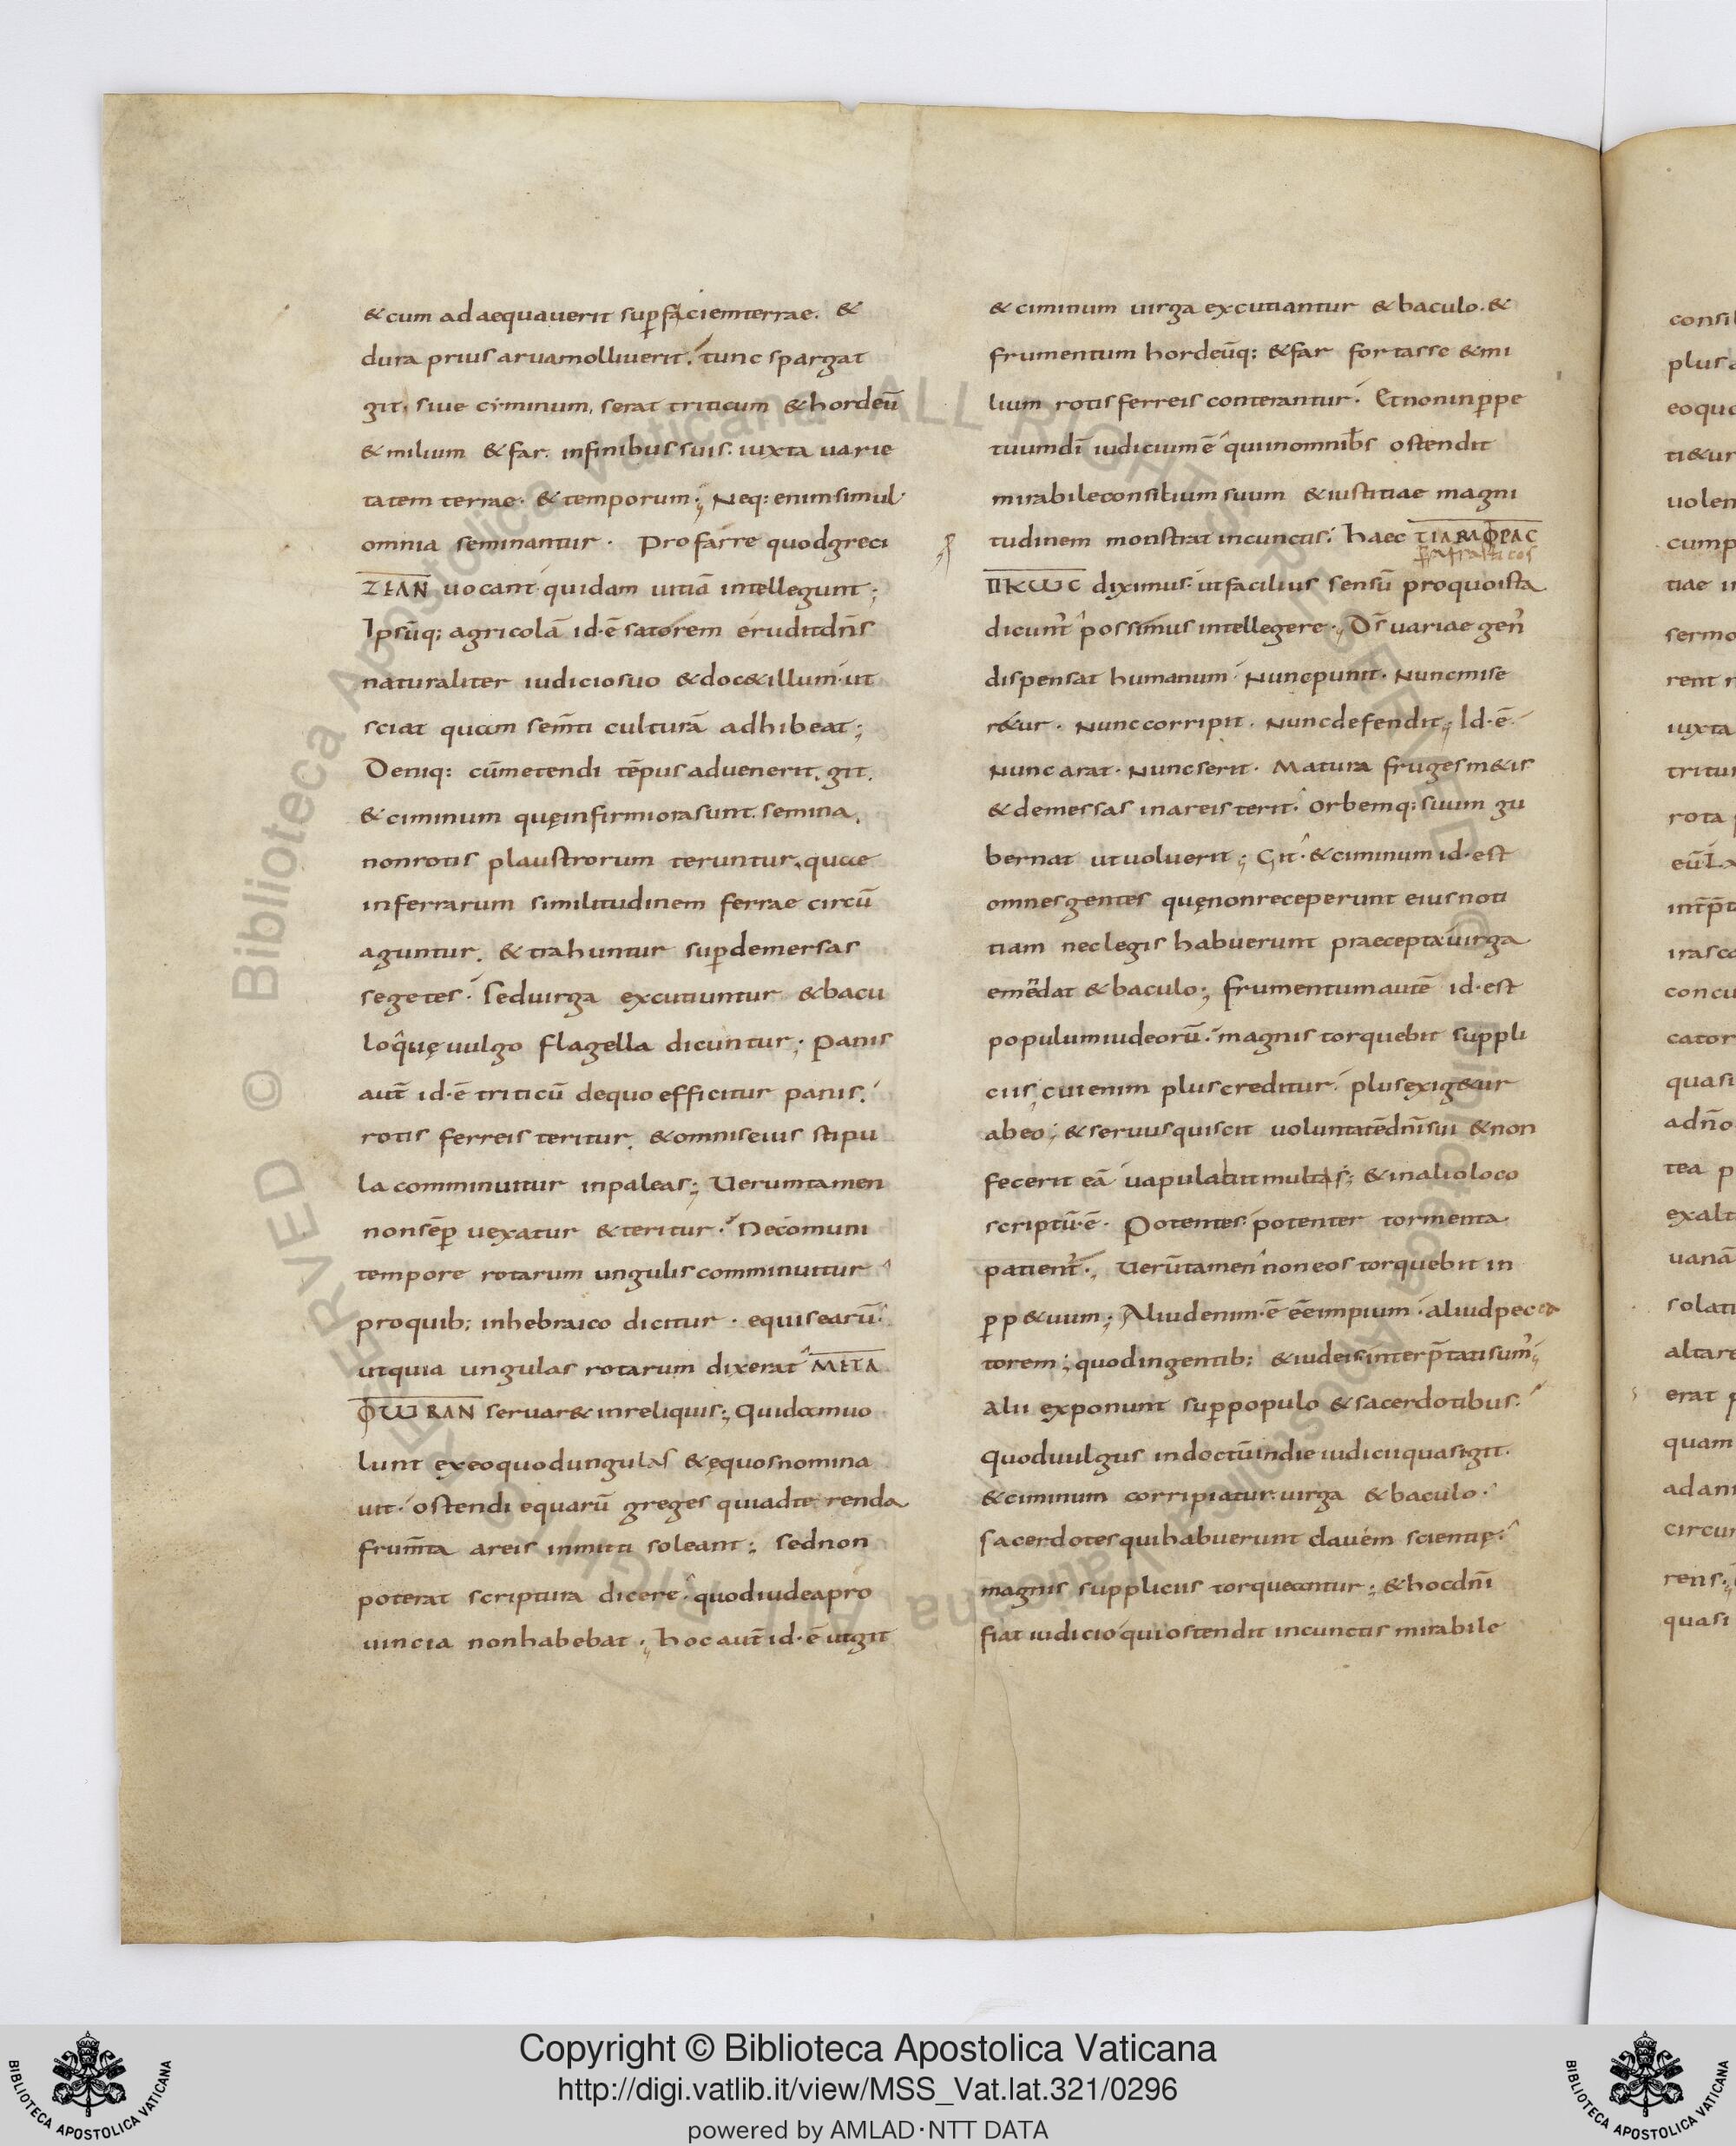 & cum adaequauerit sup̱faciem terrae. &
dura prius arua molliuerit. tunc spargat
git. siue ciminum, serat triticum & hordeū
& milium & far. in finibus suis. iuxta uarie
tatem terrae. & temporum; Neq: enim simul
omnia seminantur. Pro farre quod greci
ΖΕΙΑΝ uocant quidam uitiā intellegunt;
Ipsūq; agricolā id·ē satorem erudit dn̄s
naturaliter iudicio suo & doc& illum. ut
sciat quam sem̄ti culturā adhibeat;
Deniq: cū metendi tēpus aduenerit. git.
& ciminum quę infirmiora sunt. semina.
non rotis plaustrorum teruntur. quae
in ferrarum similitudinem ferrae circū
aguntur. & trahuntur sup̱ demersas
segetes. Sed uirga excutiuntur & bacu
lo. quę uulgo flagella dicuntur; Panis
aut̄ id·ē triticū de quo efficitur panis.
rotis ferreis teritur. & omnis eius stipu
la comminuitur in paleas; Uerumtamen
non sēp̱ uexatur & teritur. Nec omni
tempore rotarum ungulis comminuitur
pro quib; in hebraico dicitur. equis earū.
ut quia ungulas rotarum dixerat ΜΕΤΑ
ΦωRΑΝ seruar& in reliquis; Quidam uo
lunt ex eo quod ungulas & ęquos nomina
uit. ostendi equarū greges qui ad terenda
frum̄ta areis inmitti soleant; sed non
poterat scriptura dicere. quod iudea pro
uincia non habebat; hoc aut̄ id·ē ut git
& ciminum uirga excutiantur & baculo. &
frumentum hordeūq; & far fortasse & mi
lium rotis ferreis conterantur. Et non in p̱pe
tuum dī iudicium ē qui in omnib̄s ostendit
mirabile consilium suum & iustitiae magni
tudinem monstrat in cunctis. haec ΠΑRΑΦΡΑC
parafrasticos
ΤΙΚωC diximus. ut facilius sensū pro quo ista
dicunt᷑ possimus intellegere; Ds̄ uariae gen᷑
dispensat humanum. Nunc punit. Nunc mise
r&ur. Nunc corripit. Nunc defendit; Id·ē
Nunc arat. Nunc serit. Matura fruges m&is
& demessas in areis terit. Orbemq: suum gu
bernat ut uoluerit; Git. & ciminum id·est
omnes gentes quę non receperunt eius noti
tiam nec legis habuerunt praecepta uirga
emēdat & baculo; frumentum autē id·est
populum iudeorū. magnis torquebit suppli
ciis, cui enim plus creditur. plus exig&ur
ab eo; & seruus qui scit uoluntatē dn̄i sui & non
fecerit eā uapulabit multas; & in alio loco
scriptū·ē. Potentes potenter tormenta
patient᷑; Uerūtamen non eos torquebit in
p̱p&uum; Aliud enim·ē eē impium. aliud pecca
torem; quod in gentib; & iudeis interp̄tati sum᷑;
alii exponunt sup̱ populo & sacerdotibus.
Quod uulgus indoctū in die iudicii quasi git.
& ciminum corripiatur. uirga & baculo.
sacerdotes qui habuerunt clauem scientię.
magnis suppliciis torqueantur; & hoc dn̄i
fiat iudicio qui ostendit in cunctis mirabile
Copyright © Biblioteca Apostolica Vaticana
http://digi.vatlib.it/view/MSS_Vat.lat.321/0296
powered by AMLAD·NTT DATA